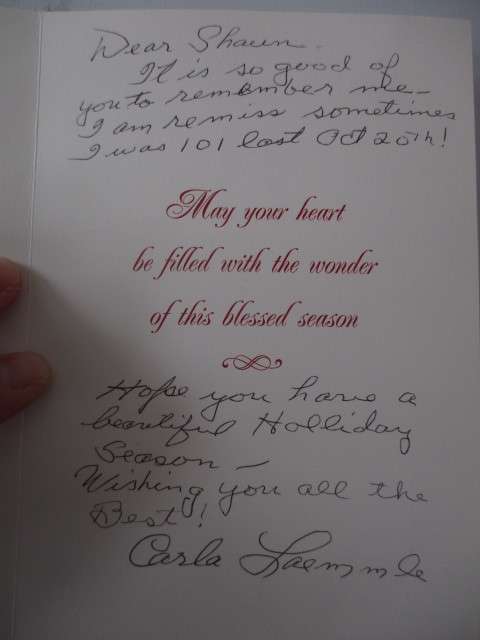 Dear Shaun.
It is so good of
you to remember me -
I am remiss sometimes
I was 101 last Oct 20th!
May your heart
be filled with the wonder
of this blessed season
Hope you have a
beautiful Holliday
Season -
Wishing you all the
Best!
Carla Laemmle